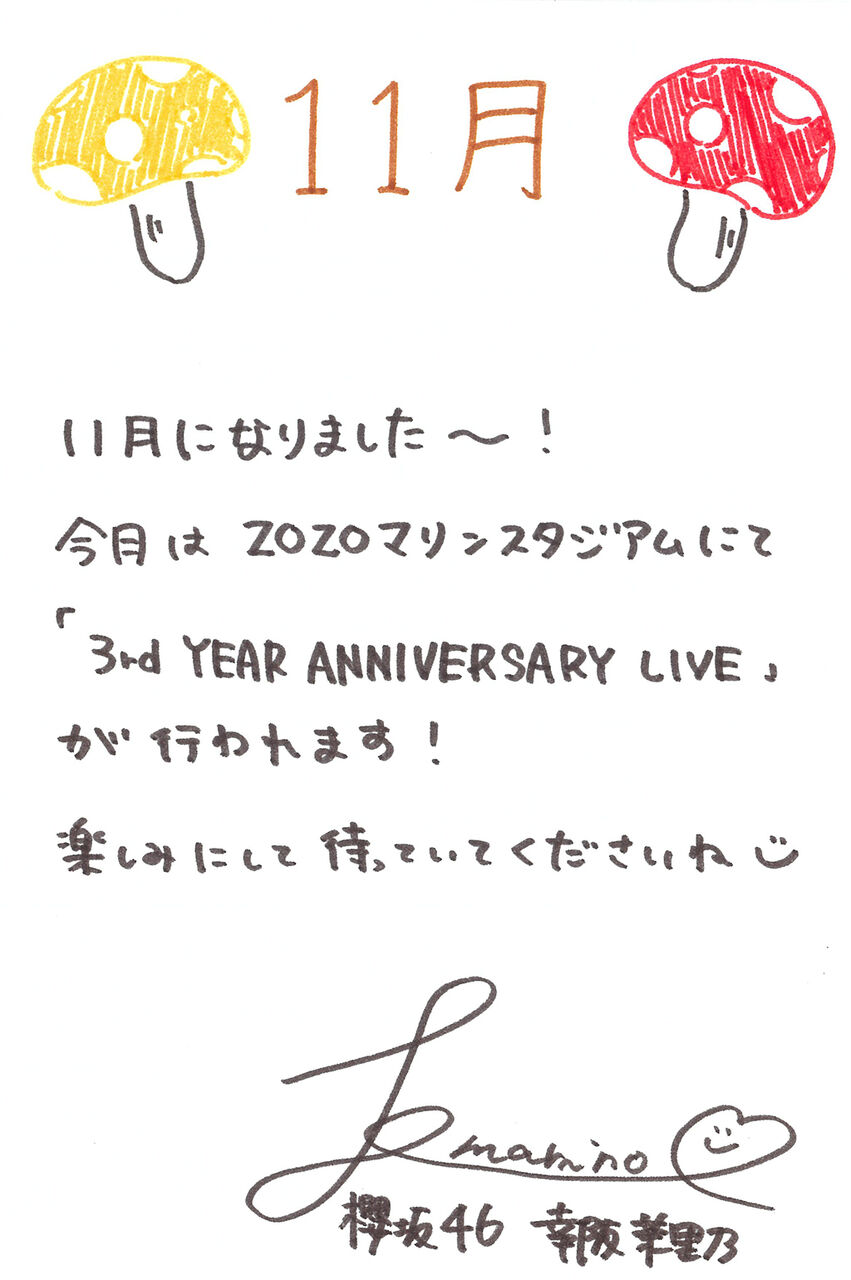 11月
11月になりました〜！
今月は ZOZOマリンスタジアムにて
「3rd YEAR ANNIVERSARY LIVE」
が行われます！
楽しみにして待っていてくださいね
marino
櫻坂46 幸阪茉里乃